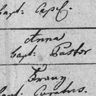 Capt. Apel.
Anna
Capt. Pastor
Franz
Capt.